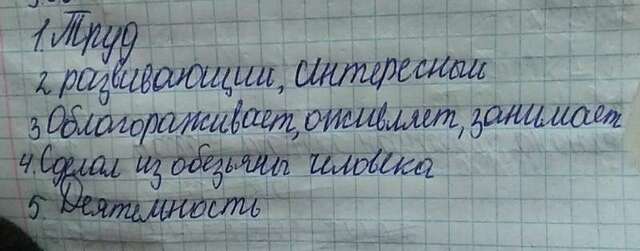 1. Труд
2 развивающии, интересныи
3 Облагораживает, оживляет, занимает
4. Сделал из обезьяны человека
5. Деятельность